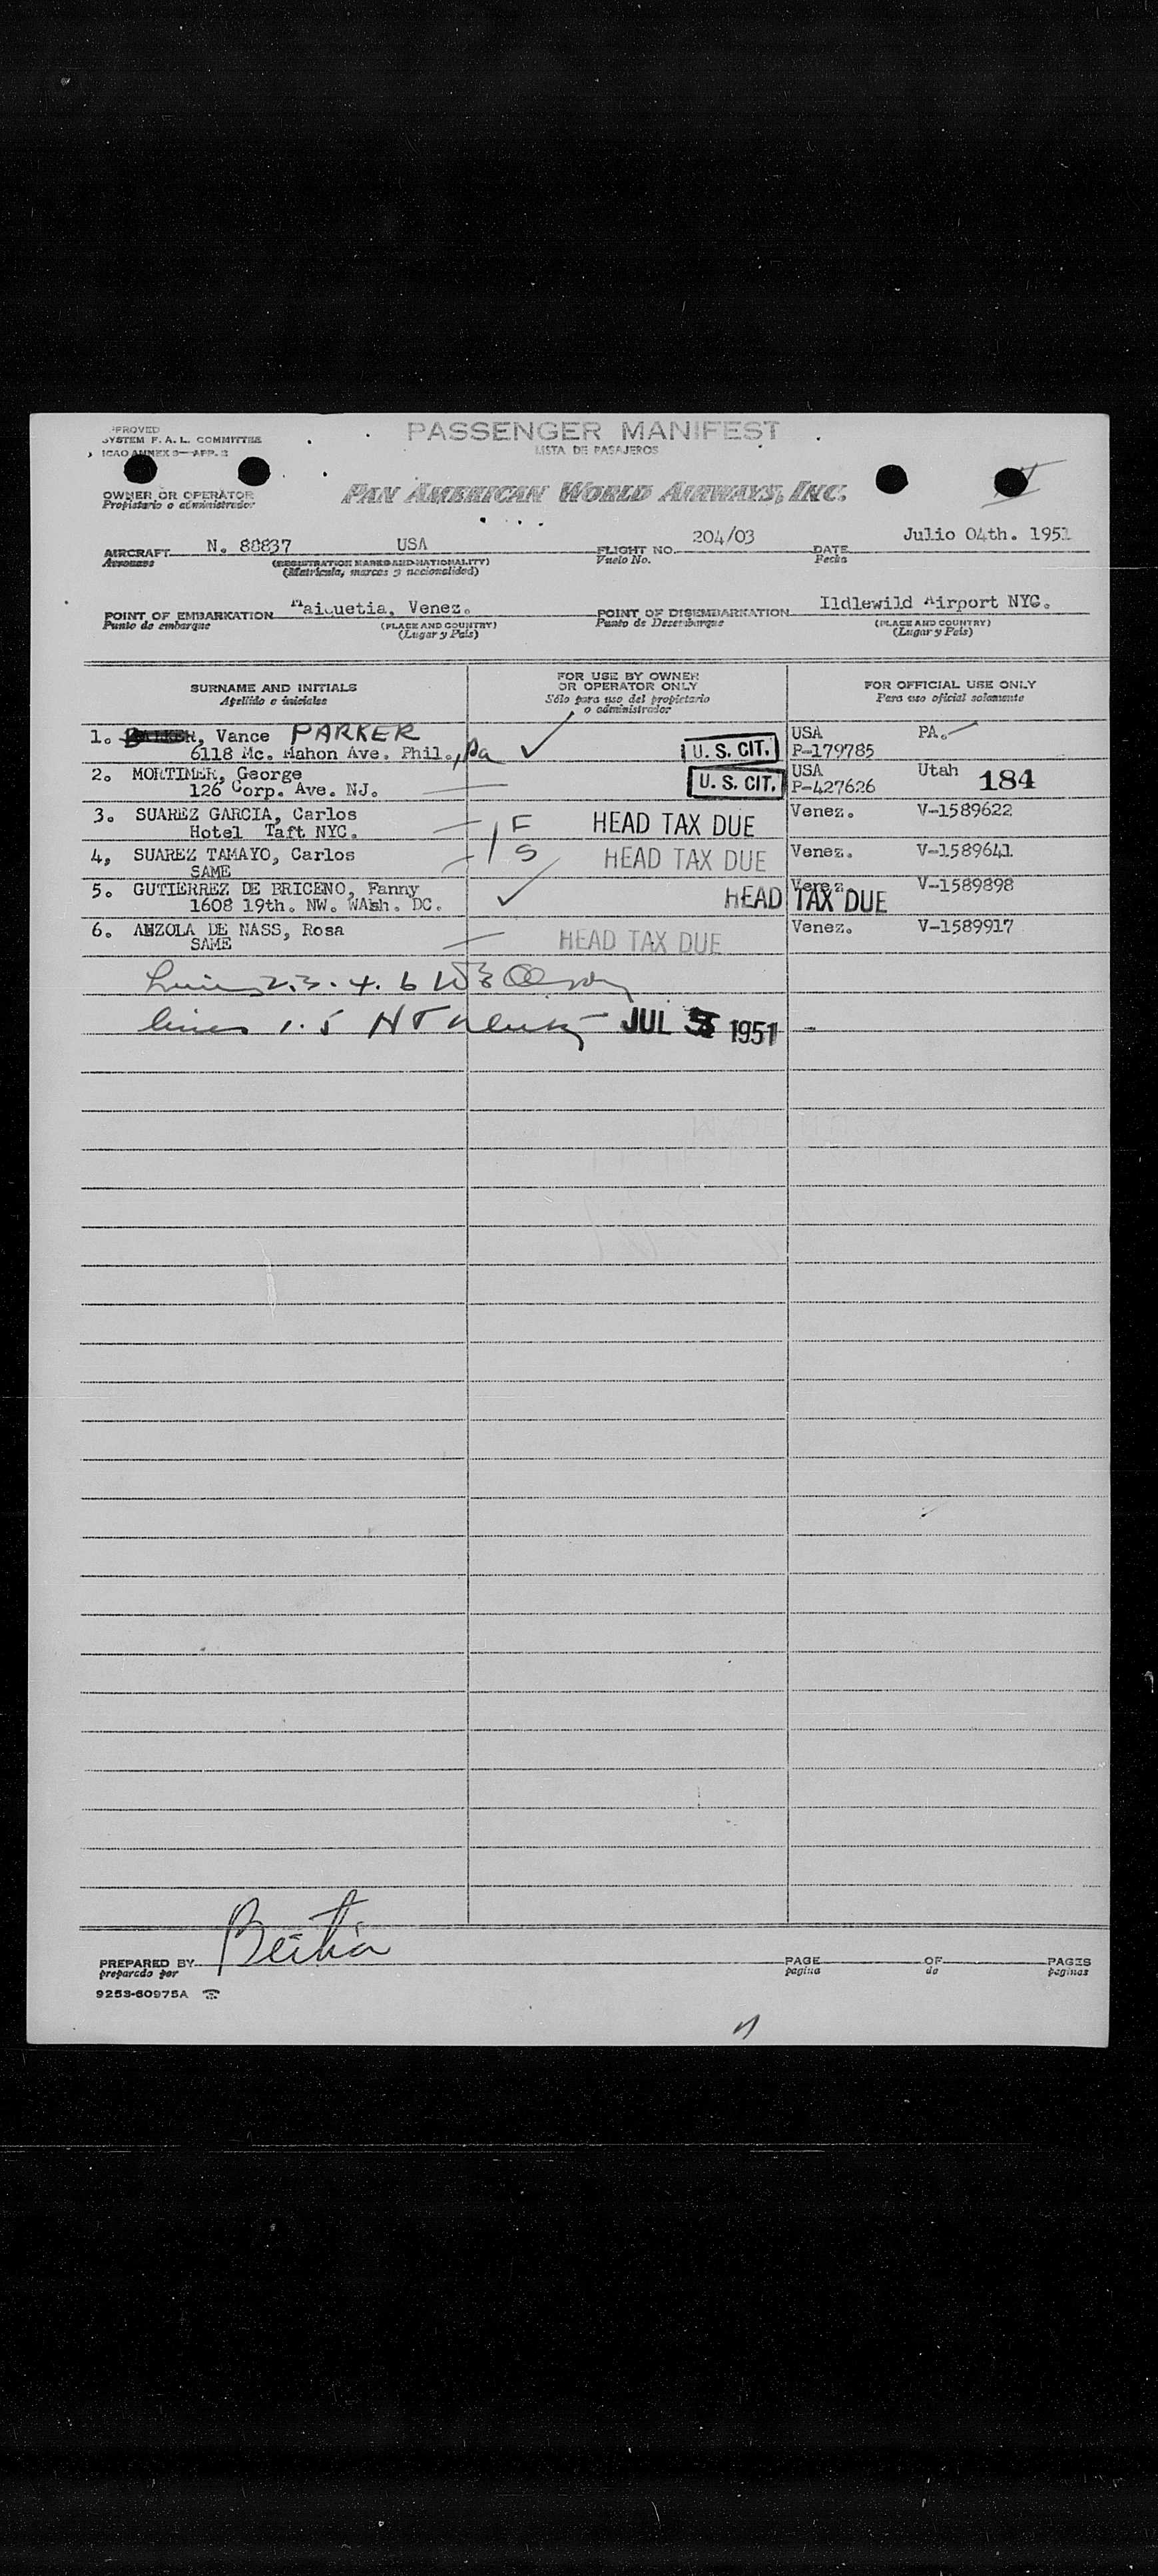 PROVED
SYSTEM F. A. L. COMMITTEE
ICAO ANNEX 9—APP. 2
PASSENGER MANIFEST
LISTA DE PASAJEROS
OWNER OR OPERATOR
Propietario o administrador
PAN AMERICAN WORLD AIRWAYS, INC.
AIRCRAFT N. 88837 USA FLIGHT NO. 204/03 DATE Julio 04th. 1951
Aeronave (REGISTRATION MARKS AND NATIONALITY) Vuelo No. Fecha
(Matrícula, marcas y nacionalidad)
POINT OF EMBARKATION Maiquetia, Venez. POINT OF DISEMBARKATION Ildlewild Airport NYC.
Punto de embarque (PLACE AND COUNTRY) Punto de Desembarque (PLACE AND COUNTRY)
(Lugar y País) (Lugar y País)
SURNAME AND INITIALS
Apellido e iniciales
FOR USE BY OWNER
OR OPERATOR ONLY
Sólo para uso del propietario
o administrador
FOR OFFICIAL USE ONLY
Para uso oficial solamente
1. , Vance PARKER USA PA.
6118 Mc. Mahon Ave. Phil., Pa U. S. CIT. P-179785
2. MORTIMER, George USA Utah 184
126 Corp. Ave. NJ. U. S. CIT. P-427626
3. SUAREZ GARCIA, Carlos F HEAD TAX DUE Venez. V-1589622
Hotel Taft NYC.
4, SUAREZ TAMAYO, Carlos S HEAD TAX DUE Venez. V-1589641
SAME
5. GUTIERREZ DE BRICENO, Fanny Venez. V-1589898
1608 19th. NW. WAsh. DC. HEAD TAX DUE
6. ANZOLA DE NASS, Rosa HEAD TAX DUE Venez. V-1589917
SAME
Lines 2.3.4.6
lines 1.5 JUL 5 1951
PREPARED BY PAGE OF PAGES
preparado por pagina de paginas
9253-60975A